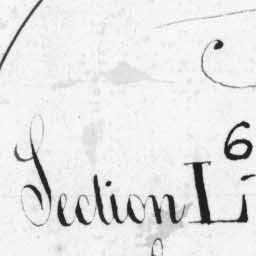 6
Section Li